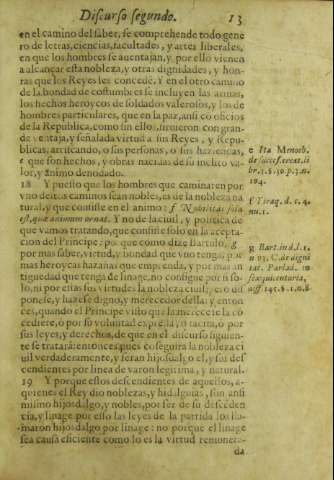 Discurso segundo. 13
en el camino del saber, se comprehende todo gene
ro de letras, ciencias, facultades, y artes liberales,
en que los hombres se auentajan, y por ello vienen
a alcançar esta nobleza, y otras dignidades, y hon-
ras que los Reyes les concedē. Y en el otro camino
de la bondad de costumbres se incluyen las armas,
los hechos heroycos de soldados valerosos, y los de
hombres particulares, que en la paz, así cō oficios
de la Republica, como sin ellos, siruieron con gran-
de ventaja, y señalada virtud a sus Reyes, y Repu-
blicas, arriscando, o sus personas, o sus haziendas,
e que son hechos, y obras nacidas de su inclito va-
lor, y animo denodado.
18 Y puesto que los hombres que caminaren por
vno destos caminos sean nobles, es de la nobleza na
tural, y que consiste en el animo: f Nobilitas sola
est, quæ animum ornat. Y no de la ciuil, y politica de
que vamos tratando, que consiste solo en la accepta-
cion del Principe: porque como dize Bartulo, g
por mas saber, virtud, y bondad que vno tenga, por
mas heroycas hazañas que emprenda, y por mas an
tiguedad que tenga de linage, no consigue por si so-
lo, ni por estas sus virtudes la nobleza ciuil, pero dis
ponese, y hazese digno, y merecedor della: y enton
ces, quando el Principe visto que la merece se la cō
cediere, o por su voluntad expressa, o tacita, o por
sus leyes, y derechos, de que en el discurso siguien-
te se tratará: entonces pues conseguirá la nobleza ci
uil verdaderamente, y seran hijosdalgo el, y sus des
cendientes por linea de varon legitima, y natural.
19 Y porque estos descendientes de aquellos, a-
quienes el Rey dio noblezas, y hidalguias, son ansi
mismo hijosdalgo, y nobles, por ser de su descēden
cia, y linage por esso las leyes de la partida los lla-
maron hijosdalgo por linage: no porque el linage
sea causa eficiente como lo es la virtud remunera-
da
e Ita Menoch.
de succes. creat. li
br. 3. §. 30. p. 3. n.
104.
f Tiraq. d. c. 4.
nu. 1.
g Bart. in d. l. 1.
n. 93. C. de digni
tat. Parlad. in
sexquicenturia,